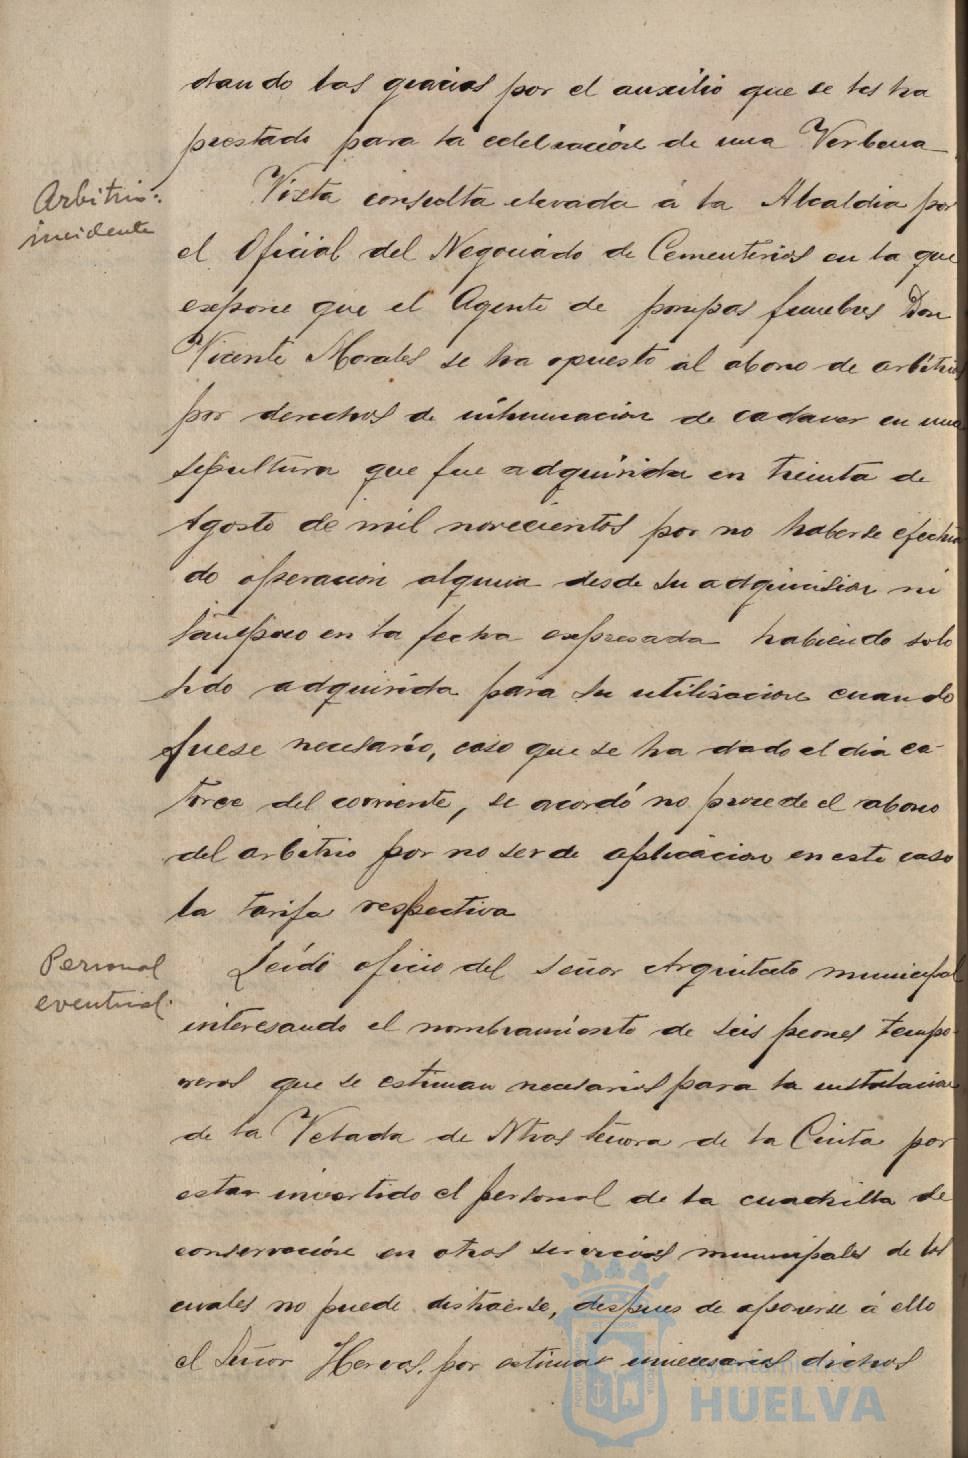 dando las gracias por el auxilio que se les ha
prestado para la celebración de una Verbena
Arbitrio:
incidente
Vista consulta elevada á la Alcaldia por
el Oficial del Negociado de Cementerios en la que
expone que el Agente de pompas funebres Don
Vicente Morales se ha opuesto al abono de arbitrios
por derechos de inhumacion de cadaver en una
sepultura que fue adquirida en treinta de
Agosto de mil novecientos por no haberse efectua
do operacion alguna desde su adquisicion ni
tampoco en la fecha expresada habiendo solo
sido adquirida para su utilizacion cuando
fuese necesario, caso que se ha dado el dia ca-
torce del corriente, se acordó no procede el abono
del arbitrio por no ser de aplicacion en este caso
la tarifa respectiva
Personal
eventual.
Leido oficio del señor Arquitecto municipal
interesando el nombramiento de seis peones tempo-
reros que se estiman necesarios para la instalacion
de la Velada de Ntra Señora de la Cinta por
estar invertido el personal de la cuadrilla de
conservación en otros servicios municipales de los
cuales no puede distraerse, despues de oponerse á ello
el Señor Hervas, por estimar innecesarios dichos
Ayuntamiento de
HUELVA